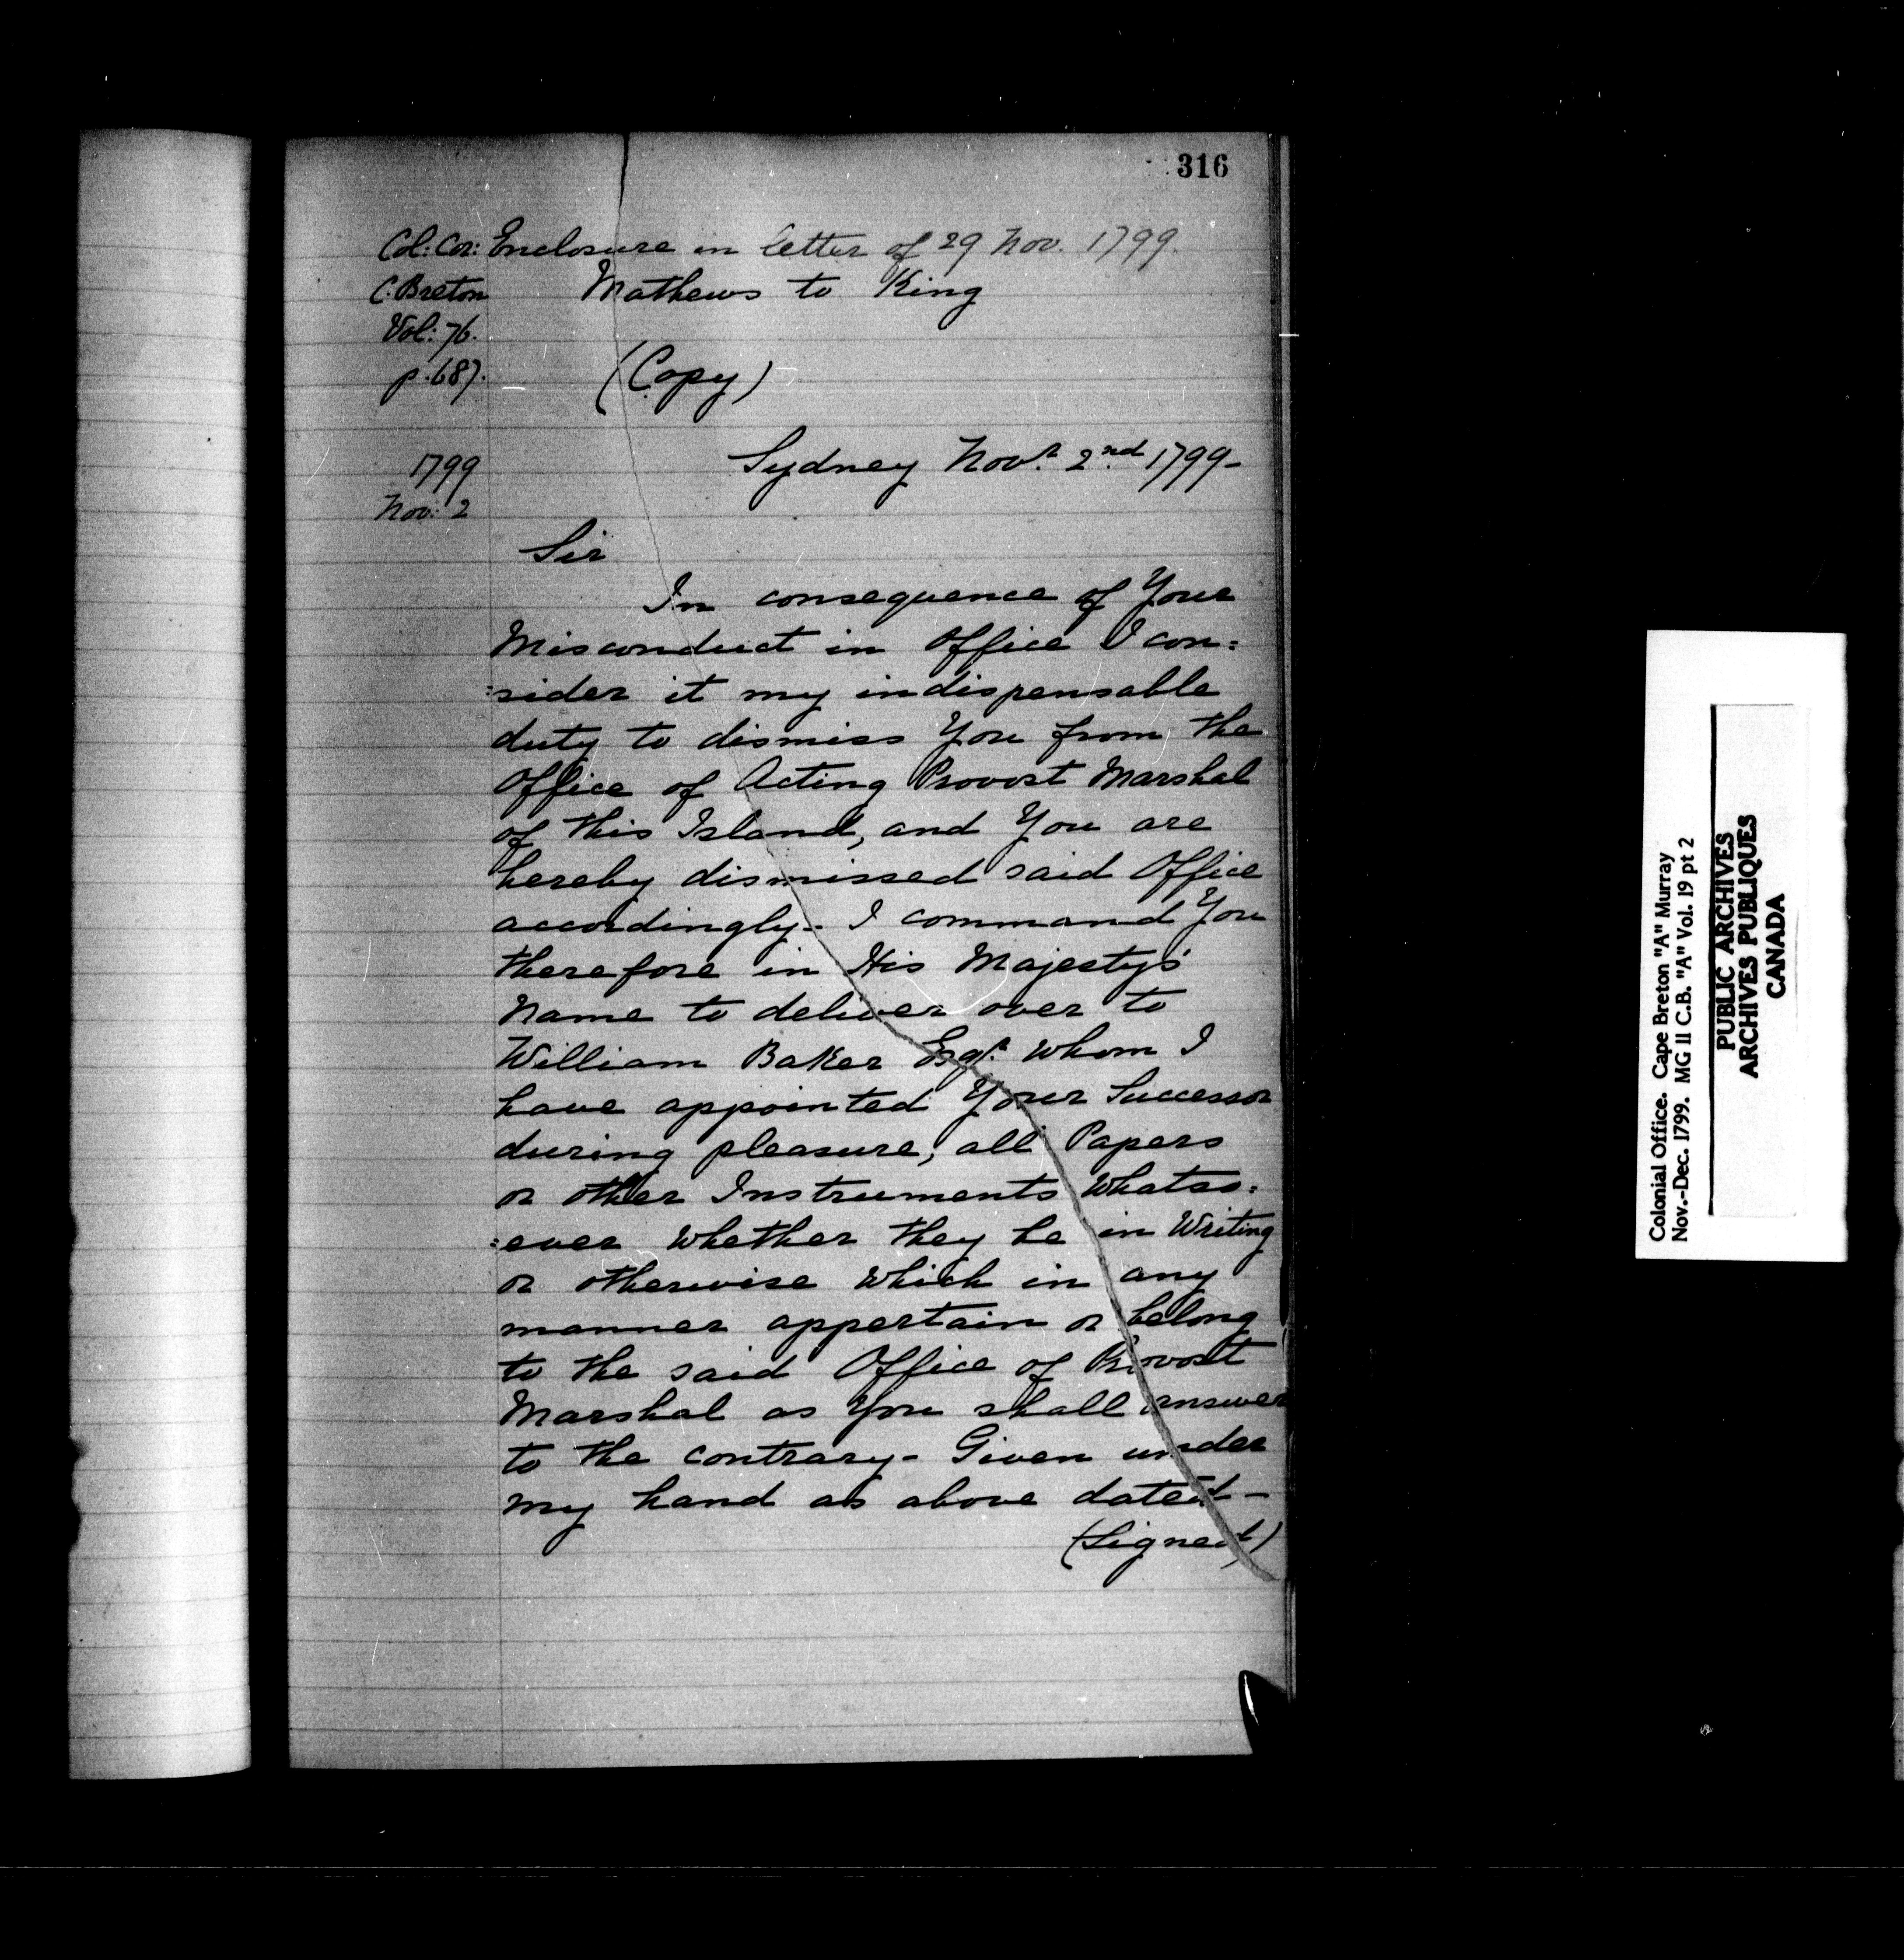 316
Col: Cor: Enclosure in letter of 29 Nov. 1799.
C. Breton Mathews to King
Vol: 76.
p. 687. (Copy)
Sydney Novr. 2nd 1799-
1799
Nov: 2
Sir
In consequence of Your
Misconduct in Office I con:
:sider it my indispensable
duty to dismiss You from the
Office of Acting Provost Marshal
of this Island, and You are
hereby dismissed said Office
accordingly - I command You
therefore in His Majesty's
Name to deliver over to
William Baker Esqr. whom I
have appointed Your Successor
during pleasure, all Papers
or other Instruments Whatso:
:ever Whether they be in Writing
or otherwise Which in any
manner appertain or belong
to the said Office of Provost
Marshal as You shall answer
to the contrary - Given under
my hand as above dated -
(Signed)
Colonial Office. Cape Breton "A" Murray
Nov.-Dec. 1799. MG II C.B. "A" Vol. 19 pt 2
PUBLIC ARCHIVES
ARCHIVES PUBLIQUES
CANADA